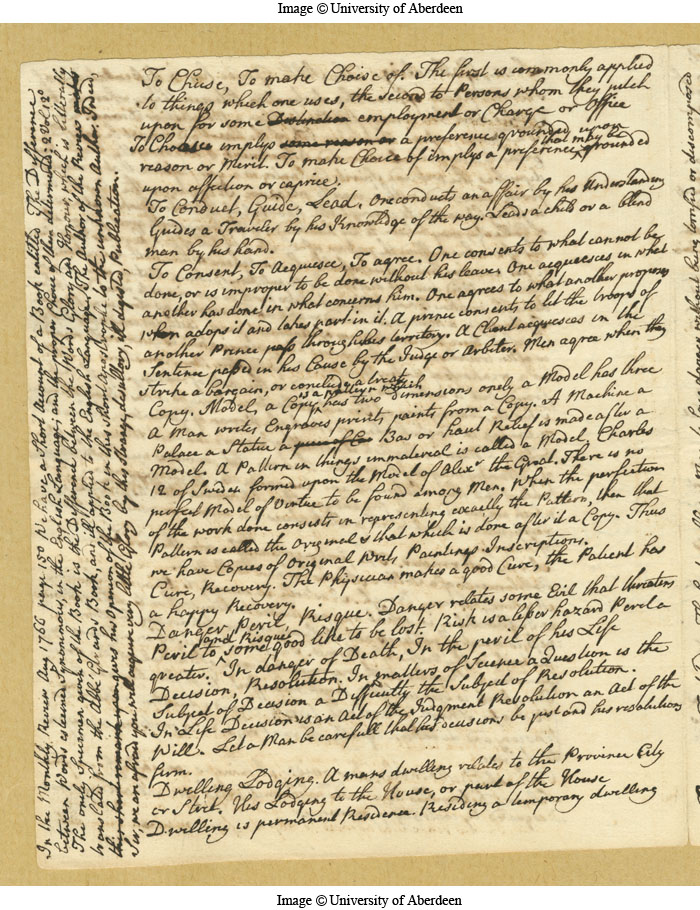 Image © University of Aberdeen
To Chuse, To make Choice of. The first is commonly applied
to things which one uses, the second to Persons whom they pitch
upon for some Distinction employment or Charge or Office
To Choose implys some reason or a preference grounded upon
reason or Merit. To make Choice of implys a preference that may be grounded
upon affection or caprice.
To Conduct, Guide, Lead. One conducts an affair by his Understanding
Guides a Traveler by his Knowledge of the way. Leads a child or a blind
man by his hand.
To Consent, To Acquiesce, To agree. One consents to what cannot be
done, or is improper to be done without his leave. One acquiesces in what
another has done in what concerns him. One agrees to what another proposes
when adops it and takes part in it. A prince consents to let the troops of
another Prince pass through his territory. A Client acquiesces in the
Sentence passed in his Cause by the Judge or Arbiter. Men agree when they
strike a bargain, or conclude a treaty
Copy. Model, a Copy is a pattern which has two dimensions onely a Model has three
A Man writes Engraves prints, paints from a Copy. A Machine a
Palace a Statue a Bas or haut Relief is made after a
Model. A Pattern in things immaterial is called a Model, Charles
12 of Sweden formed upon the Model of Alexr the Great. There is no
perfect Model of Virtue to be found among Men. When the perfection
of the work done consists in representing exactly the Pattern, then that
Pattern is called the Original & that which is done after it a Copy. Thus
we have Copies of Original Writs, Paintings, Inscriptions.
Cure, Recovery. The Physician makes a good Cure, the Patient has
a happy Recovery.
Danger, Peril, Risque. Danger relates some Evil that threatens
Peril and Risque to some good like to be lost. Risk is a lesser hazard Peril a
greater. In danger of Death, In the peril of his Life
Decision, Resolution. In matters of Science a Question is the
Subject of Decision a Difficulty the Subject of Resolution.
In Life Decision is an Act of the Judgment Resolution an Act of the
Will. Let a Man be carefull that his decisions be just and his resolutions
firm.
Dwelling Lodging. A mans dwelling relates to the Province City
or Street. His Lodging to the House, or part of the House
Dwelling is permanent Residence. Residing a temporary dwelling
In the Monthly Review Aug 1766 page 150 we have a Short Account of a Book entitled The Difference
between Words esteemed Synonymous, in the English Language; and the proper Choice of them determined: 2 Vol 12º
The only Specimen given of the Book is the Difference between the Words Glory and Honour, which is litterally
translated from the Abbé Girards Book, and ill applied to the English Language. The Author of the Review
this Short Apostrophe to the unknown Author. Indeed,
Sir, we are afraid you will acquire very little Glory by this strange, desultory, ill digested, Publication.
Image © University of Aberdeen